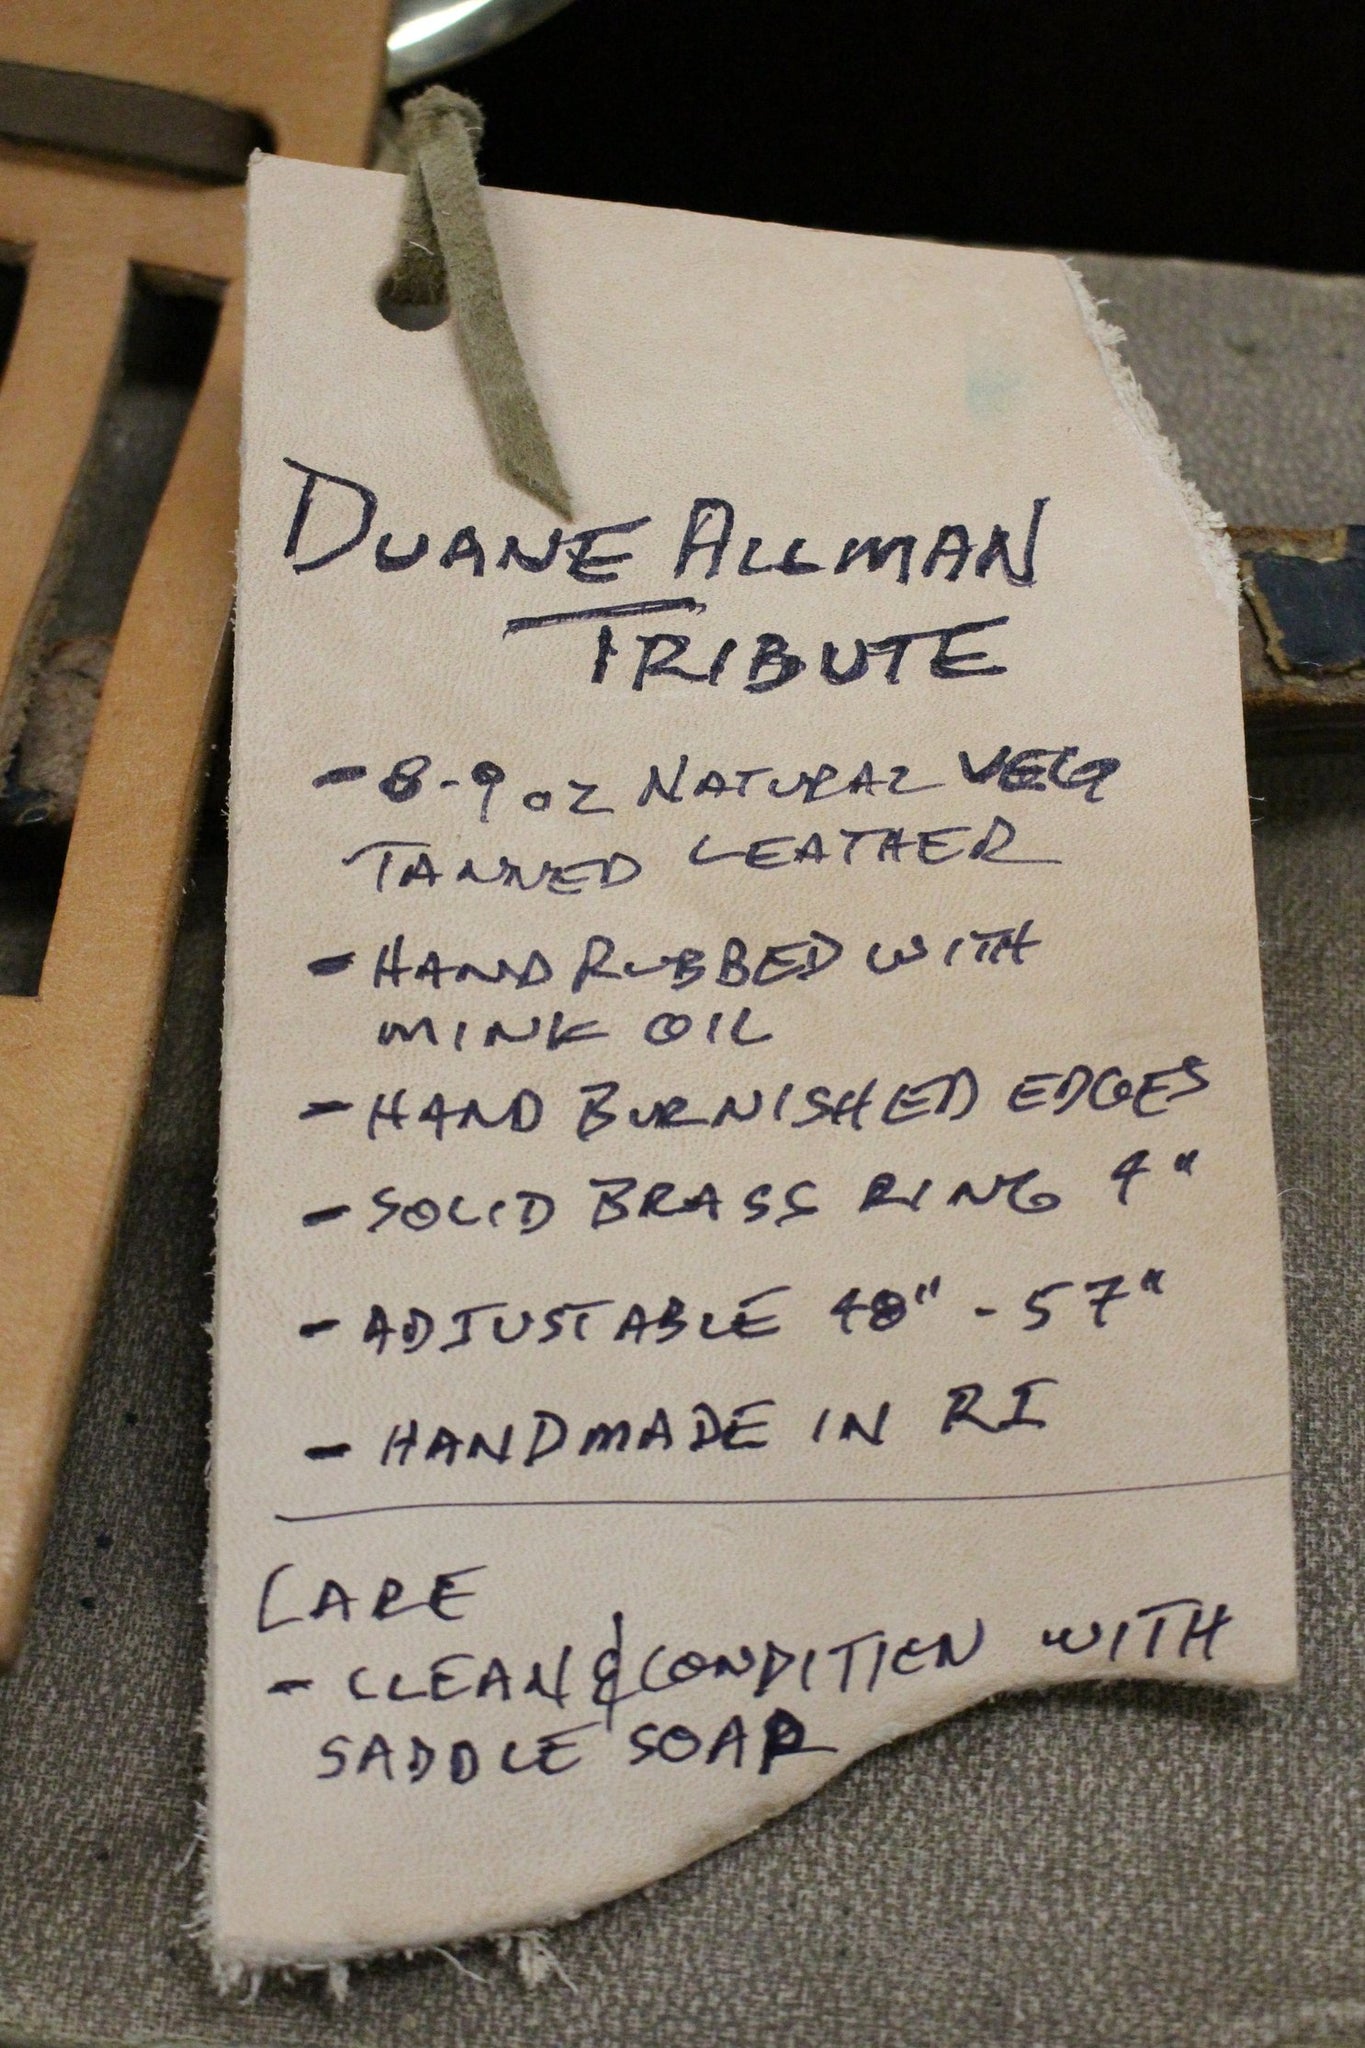 DUANE ALLMAN
TRIBUTE
- 8-9 oz NATURAL VEG
TANNED LEATHER
- HAND RUBBED WITH
MINK OIL
- HAND BURNISHED EDGES
- SOLID BRASS RING 4"
- ADJUSTABLE 48" - 57"
- HANDMADE IN RI
CARE
- CLEAN & CONDITION WITH
SADDLE SOAP